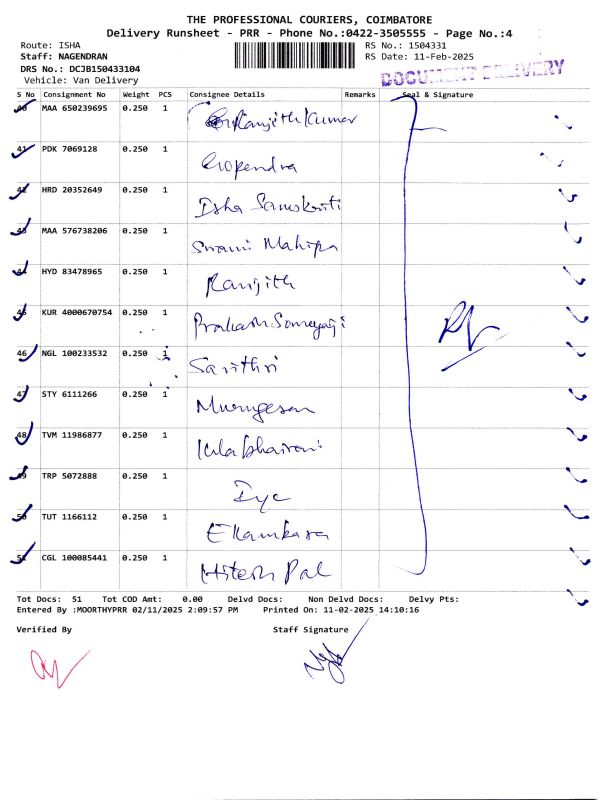 THE PROFESSIONAL COURIERS, COIMBATORE
Delivery Runsheet - PRR - Phone No.:0422-3505555 - Page No.:4
Route: ISHA RS No.: 1504331
Staff: NAGENDRAN RS Date: 11-Feb-2025
DRS No.: DCJB150433104
Vehicle: Van Delivery
DOCUMENT DELIVERY
S No Consignment No Weight PCS Consignee Details Remarks Seal & Signature
40 MAA 650239695 0.250 1 Ranjith Kumar
41 PDK 7069128 0.250 1 Gopendra
42 HRD 20352649 0.250 1 Isha Samskriti
43 MAA 576738206 0.250 1 Swami Mahipa
44 HYD 83478965 0.250 1 Ranjith
45 KUR 4000670754 0.250 1 Prakash Someyaji
46 NGL 100233532 0.250 1 Sarithri
47 STY 6111266 0.250 1 Murugesan
48 TVM 11986877 0.250 1
49 TRP 5072888 0.250 1 Iyc
50 TUT 1166112 0.250 1 Ekamkara
51 CGL 100085441 0.250 1 Hitesh Pal
Tot Docs: 51 Tot COD Amt: 0.00 Delvd Docs: Non Delvd Docs: Delvy Pts:
Entered By :MOORTHYPRR 02/11/2025 2:09:57 PM Printed On: 11-02-2025 14:10:16
Verified By Staff Signature